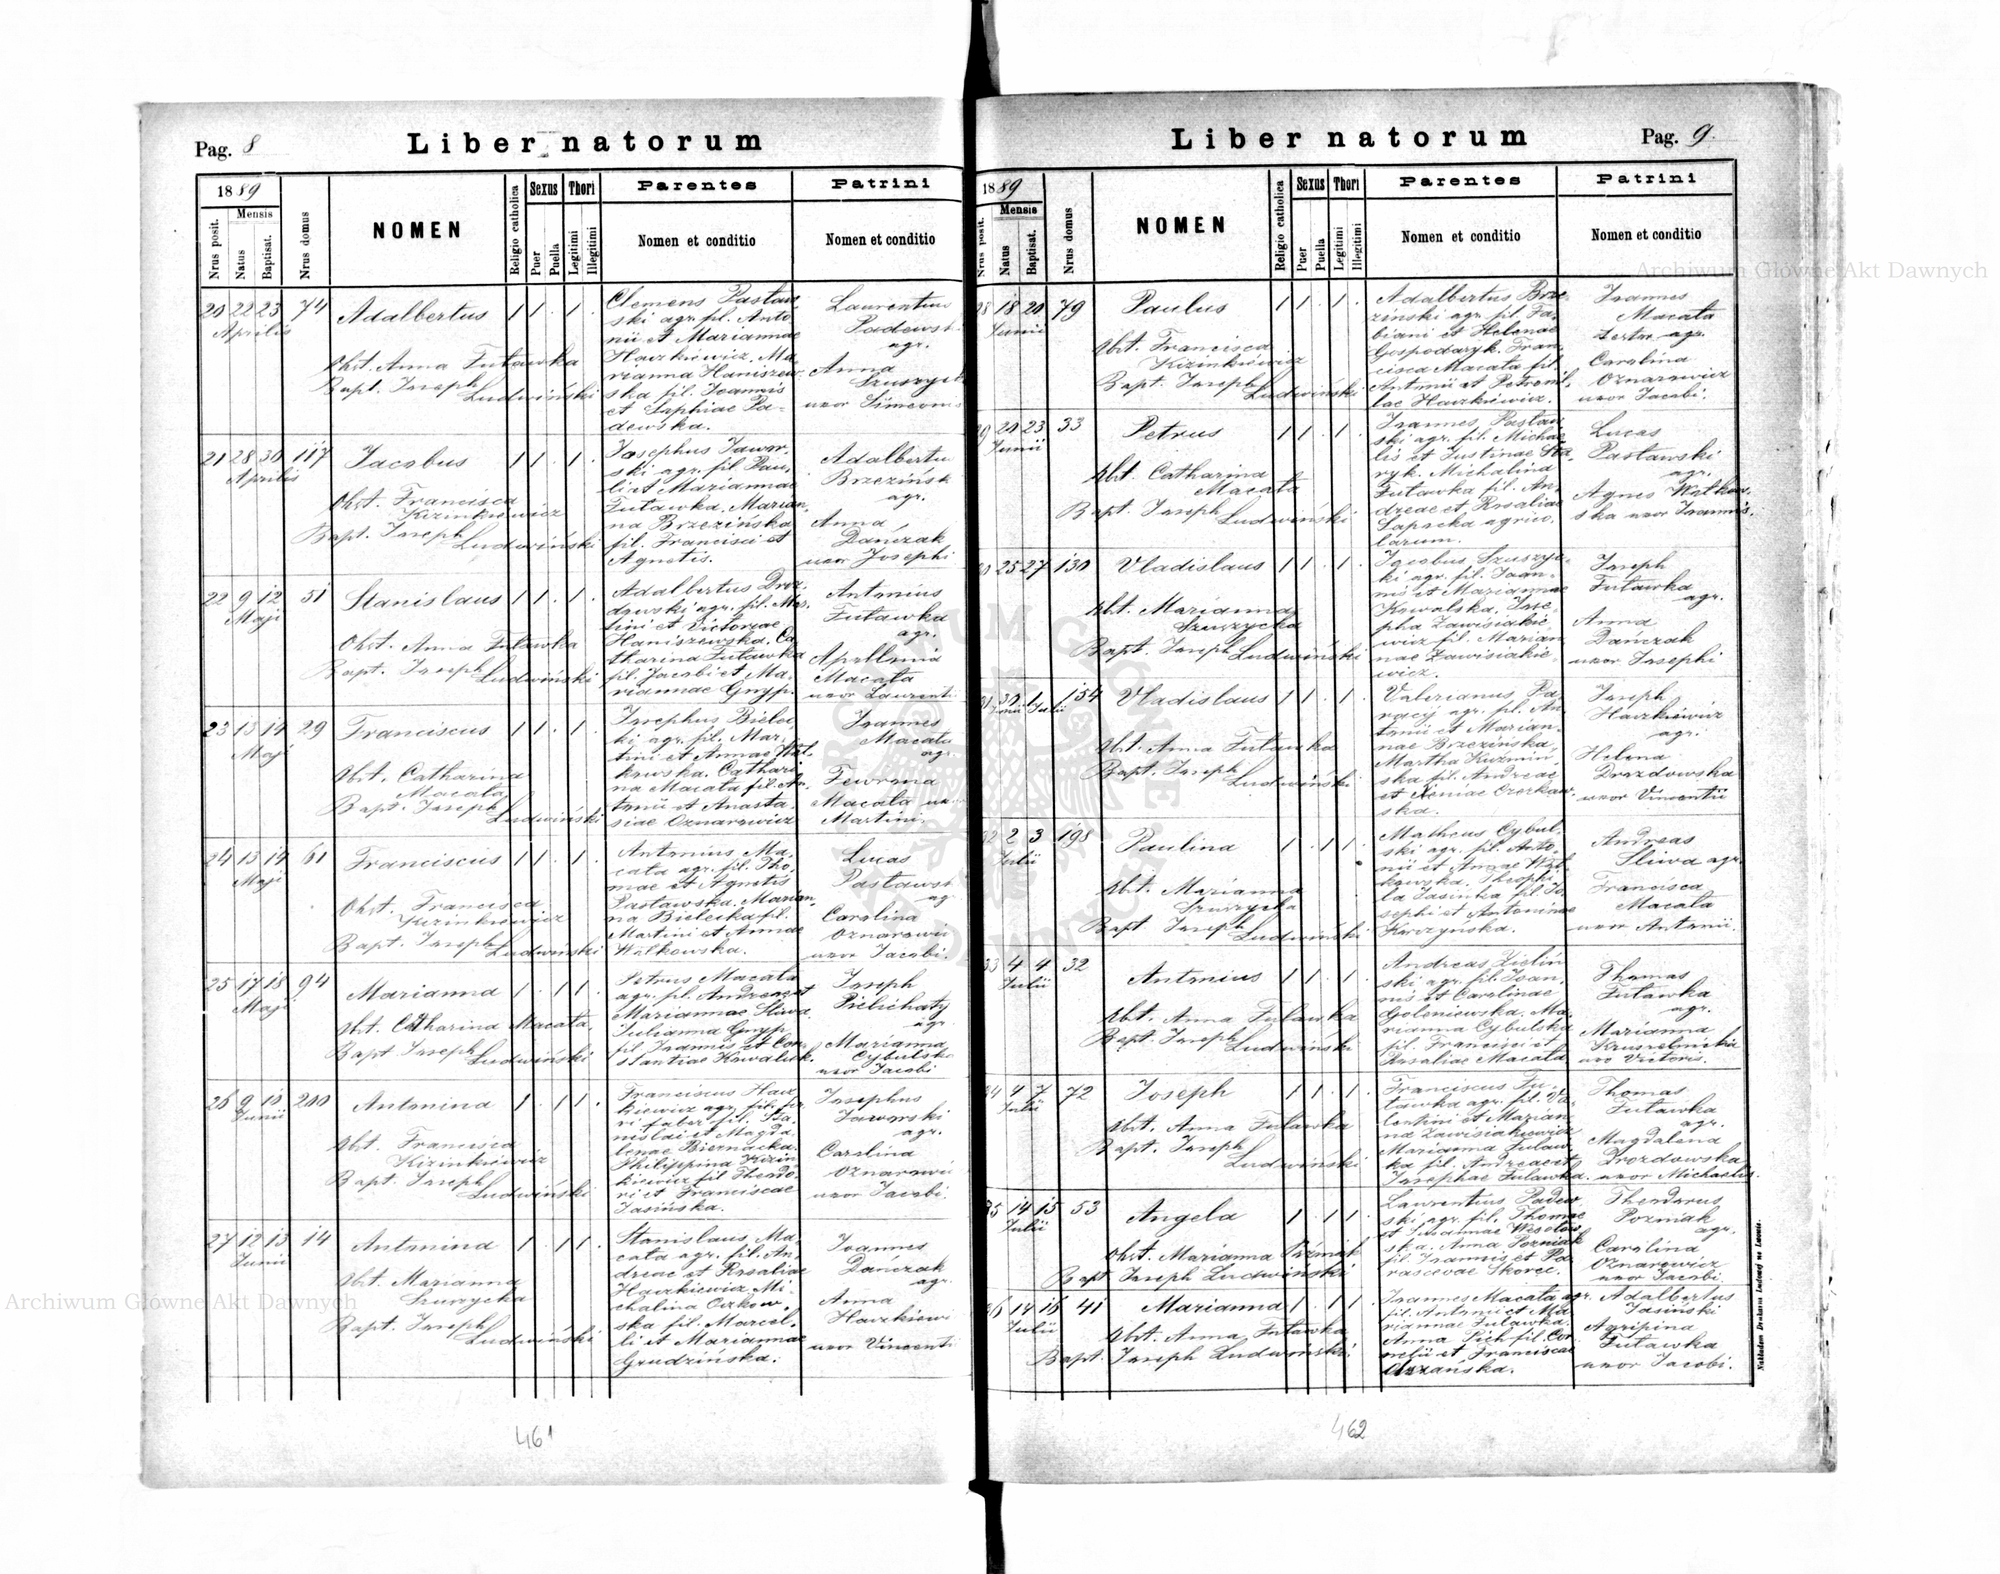 Pag. 8
Liber natorum
1889
Mensis
Nrus posit.
Natus
Baptisat.
Nrus domus
NOMEN
Religio catholica
Sexus
Puer
Puella
Thori
Legitimi
Illegitimi
Parentes
Nomen et conditio
Patrini
Nomen et conditio
20 22 23 74 Adalbertus 1 1 . 1 .
Aprilis
Obst. Anna Futawka
Bapt. Joseph
Ludwiński
Clemens Pastaw
ski agr. fil. Anto
nii et Mariannae
Haczkiewicz, Ma
rianna Haniszew
ska fil. Joannis
et Sophiae Pa-
dewska.
Laurentius
Padewsk
agr.
Anna
Szuszyck
uxor Simeonis
21 28 30 117 Jacobus 1 1 . 1 .
Aprilis
Obst. Francisca
Kizinkiewicz
Bapt. Joseph
Ludwiński
Josephus Jawor
ski agr. fil. Pau
li et Mariannae
Futawka, Marian
na Brzezińska
fil. Francisci et
Agnetis.
Adalbertu
Brzezińsk
agr.
Anna
Dańczak
uxor Josephi
22 9 12 51 Stanislaus 1 1 . 1 .
Maji
Obst. Anna Futawka
Bapt. Joseph
Ludwiński
Adalbertus Droz
dowski agr. fil. Mar
tini et Victoriae
Haniszewska, Ca
tharina Futawka
fil. Jacobi et Ma
riannae Gnyp.
Antonius
Futawka
agr.
Apollonia
Macata
uxor Laurenti
23 13 14 29 Franciscus 1 1 . 1 .
Maji
Obst. Catharina
Macata
Bapt. Joseph
Ludwiński
Josephus Bielec
ki agr. fil. Mar
tini et Annae Wit
kowska, Cathari
na Macata fil. An
tonii et Anasta
siae Oznarowicz
Joannes
Macata
agr.
Fewrona
Macata ux
Martini.
24 13 14 61 Franciscus 1 1 . 1 .
Maji
Obst. Francisca
Kizinkiewicz
Bapt. Joseph
Ludwiński
Antonius Ma
cata agr. fil. Tho
mae et Agnetis
Pastawska, Marian
na Bielecka fil.
Martini et Annae
Witkowska.
Lucas
Pastawsk
ag
Carolina
Oznarowi
uxor Jacobi.
25 17 18 94 Marianna 1 . 1 1 .
Maji
Obst. Catharina Macata.
Bapt. Joseph
Ludwiński
Petrus Macata
agr. fil. Andreae et
Mariannae Sliwa
Julianna Gnyp
fil. Joannis et Con
stantiae Kowaluk.
Joseph
Pielichaty
agr.
Marianna
Cybulska
uxor Jacobi
26 9 10 200 Antonina 1 . 1 1 .
Junii
Obst. Francisca
Kizinkiewicz
Bapt. Joseph
Ludwiński
Franciscus Hacz
kiewicz agr. fil.
ri faber fil. Sta
nislai et Magda
lenae Biernacka
Philippina Kizin
kiewicz fil. Theodo
ri et Franciscae
Jasińska.
Josephus
Jaworski
agr.
Carolina
Oznarowi
uxor Jacobi.
27 12 13 14 Antonina 1 . 1 1 .
Junii
Obst. Marianna
Szuszycka
Bapt. Joseph
Ludwiński
Stanislaus Ma
cata agr. fil. An
dreae et Rosaliae
Haczkiewicz, Mi
chalina
ska fil. Marcel
li et Mariannae
Grudzińska.
Joannes
Dańczak
agr.
Anna
Haczkiewi
uxor Vincenti
461
Liber natorum
Pag. 9.
1889
Mensis
Nrus posit.
Natus
Baptisat.
Nrus domus
NOMEN
Religio catholica
Sexus
Puer
Puella
Thori
Legitimi
Illegitimi
Parentes
Nomen et conditio
Patrini
Nomen et conditio
28 18 20 79 Paulus 1 1 . 1 .
Junii
Obt. Francisca
Kizinkiewicz
Bapt. Joseph
Ludwiński
Adalbertus Brze
ziński agr. fil. Fa
biani et Helenae
Gospodaryk, Fran
cisca Macata fil.
Antonii et Petronil
lae Haczkiewicz.
Joannes
Macata
agr.
Carolina
Oznarowicz
uxor Jacobi.
29 20 23 33 Petrus 1 1 . 1 .
Junii
Obt. Catharina
Macata
Bapt. Joseph
Ludwiński
Joannes Pastaw
ski agr. fil. Micha
lis et Justinae
ryk, Michalina
Futawka fil. An
dreae et Rosaliae
Sapieka agrico
larum.
Lucas
Pastawski
agr.
Agnes Witkow
ska uxor Joannis.
30 25 27 130 Vladislaus 1 1 . 1 .
Obt. Marianna
Szuszycka
Bapt. Joseph Ludwiński
Jacobus Szuszyc
ki agr. fil. Joan
nis et Mariannae
Kowalska, Jose
pha Zawisiakie
wicz fil. Marian
nae Zawisiakie
wicz.
Joseph
Futawka
agr.
Anna
Dańczak
uxor Josephi
31 30 1 154 Vladislaus 1 1 . 1 .
Junii Julii
Obt. Anna Futawka
Bapt. Joseph
Ludwiński
Valerianus Pa
racij agr. fil. An
tonii et Marian
nae Brzezińska,
Martha Kuzmin
ska fil. Andreae
et Xeniae Czerkaw
ska.
Joseph
Haczkiewicz
agr.
Helena
Drozdowska
uxor Vincentii
32 2 3 198 Paulina 1 . 1 1 .
Julii
Obt. Marianna
Szuszycka
Bapt. Joseph
Ludwiński
Matheus Cybul
ski agr. fil. Anto
nii et Annae Wit
kowska, Theophi
la Jasinka fil. Jo
sephi et Antoninae
Korzyńska.
Andreas
Sliwa agr.
Francisca
Macata
uxor Antonii.
33 4 4 32 Antonius 1 1 . 1 .
Julii
Obt. Anna Futawka
Bapt. Joseph
Ludwiński
Andreas Zieliń
ski agr. fil. Joan
nis et Carolinae
Goloniewska, Ma
rianna Cybulska
fil. Francisci et
Rosaliae Macata
Thomas
Futawka
agr.
Marianna
Kruszelnicka
uxo Victoris.
34 4 7 72 Joseph 1 1 . 1 .
Julii
Obt. Anna Futawka
Bapt. Joseph
Ludwiński
Franciscus Fu
tawka agr. fil. Va
lentini et Marian
na Zawisiakiewicz
Marianna Futaw
ka fil. Andreae et
Josephae Futawka.
Thomas
Futawka
agr.
Magdalena
Drozdowska
uxor Michaelis.
35 14 15 53 Angela 1 . 1 1 .
Julii
Obst. Marianna Poźniak
Bapt. Joseph Ludwiński
Laurentius Padew
ski agr. fil. Thomae
et Susannae Wesołow
ska, Anna Pozniak
fil. Joannis et Pa
rascevae Skorec.
Theodorus
Pozniak
agr.
Carolina
Oznarowicz
uxor Jacobi
36 14 16 41 Marianna 1 . 1 1 .
Julii
Obst. Anna Futawka
Bapt. Joseph Ludwiński.
Joannes Macata agr.
fil. Antonii et Ma
riannae Futawka,
Anna Pich fil. Cor
nelii et Franciscae
Adalbertus
Jasiński
Agripina
Futawka
uxor Jacobi.
Nakładem Drukarni Ludowej we Lwowie.
462
Archiwum Główne Akt Dawnych
Archiwum Główne Akt Dawnych
ARCHIWUM GŁÓWNE AKT DAWNYCH